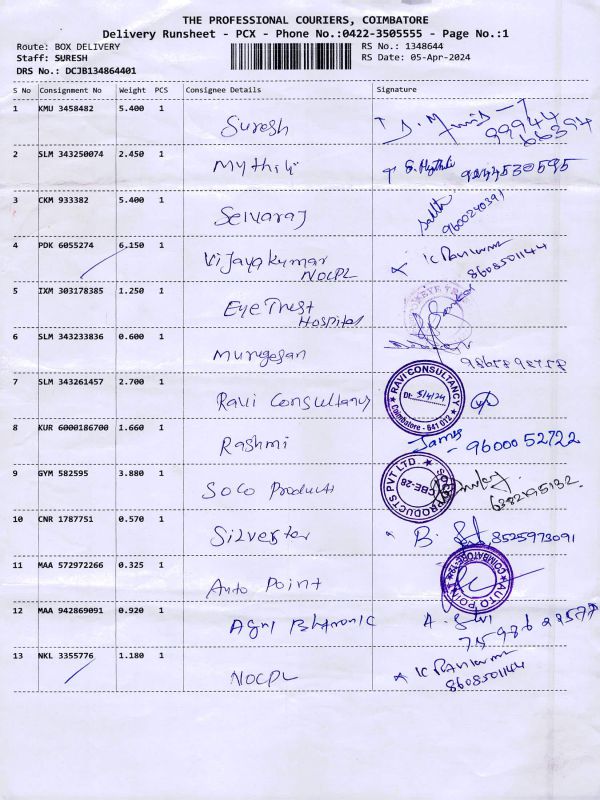 THE PROFESSIONAL COURIERS, COIMBATORE
Delivery Runsheet - PCX - Phone No.:0422-3505555 - Page No.:1
Route: BOX DELIVERY
RS No.: 1348644
Staff: SURESH
RS Date: 05-Apr-2024
DRS No.: DCJB134864401
S No Consignment No Weight PCS Consignee Details Signature
1 KMU 3458482 5.400 1 Suresh
99944
66394
2 SLM 343250074 2.450 1 Mythili S. Mythili
3 CKM 933382 5.400 1 Selvaraj
9600240391
4 PDK 6055274 6.150 1 Vijayakumar
NOCPL
8608501144
5 IXM 303178385 1.250 1 Eye Trest
Hospital
6 SLM 343233836 0.600 1 Murugesan
7 SLM 343261457 2.700 1 Ravi Consultancy
RAVI CONSULTANCY
Dt: 5/4/24
Coimbatore - 641 012
8 KUR 6000186700 1.660 1 Rashmi
James - 9600052722
9 GYM 582595 3.880 1 SOCO Products
PRODUCTS PVT LTD.
CBE-28
10 CNR 1787751 0.570 1 Silvester
B. 8525973091
11 MAA 572972266 0.325 1 Auto Point
AUTO POINT
12 MAA 942869091 0.920 1 Agni
A. Selvi
13 NKL 3355776 1.180 1 NOCPL
8608501144